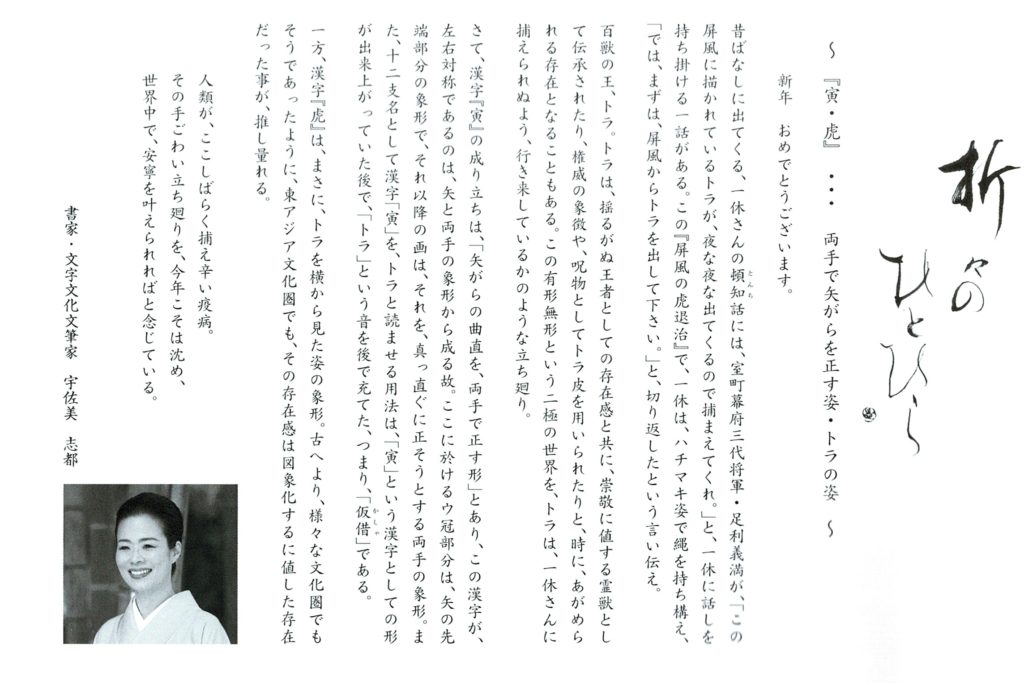 折々の
ひとひら
～ 『寅・虎』 ・・・ 両手で矢がらを正す姿・トラの姿 ～
新年 おめでとうございます。
昔ばなしに出てくる、一休さんの頓知話には、室町幕府三代将軍・足利義満が、「この
とんち
屏風に描かれているトラが、夜な夜な出てくるので捕まえてくれ。」と、一休に話しを
持ち掛ける一話がある。この『屏風の虎退治』で、一休は、ハチマキ姿で縄を持ち構え、
「では、まずは、屏風からトラを出して下さい。」と、切り返したという言い伝え。
百獣の王、トラ。トラは、揺るがぬ王者としての存在感と共に、崇敬に値する霊獣とし
て伝承されたり、権威の象徴や、呪物としてトラ皮を用いられたりと、時に、あがめら
れる存在となることもある。この有形無形という二極の世界を、トラは、一休さんに
捕えられぬよう、行き来しているかのような立ち廻り。
さて、漢字『寅』の成り立ちは、「矢がらの曲直を、両手で正す形」とあり、この漢字が、
左右対称であるのは、矢と両手の象形から成る故。ここに於けるウ冠部分は、矢の先
端部分の象形で、それ以降の画は、それを、真っ直ぐに正そうとする両手の象形。ま
た、十二支名として漢字「寅」を、トラと読ませる用法は、「寅」という漢字としての形
が出来上がっていた後で、「トラ」という音を後で充てた、つまり、「仮借」である。
かしゃ
一方、漢字『虎』は、まさに、トラを横から見た姿の象形。古へより、様々な文化圏でも
そうであったように、東アジア文化圏でも、その存在感は図象化するに値した存在
だった事が、推し量れる。
人類が、ここしばらく捕え辛い疫病。
その手ごわい立ち廻りを、今年こそは沈め、
世界中で、安寧を叶えられればと念じている。
書家・文字文化文筆家 宇佐美 志都